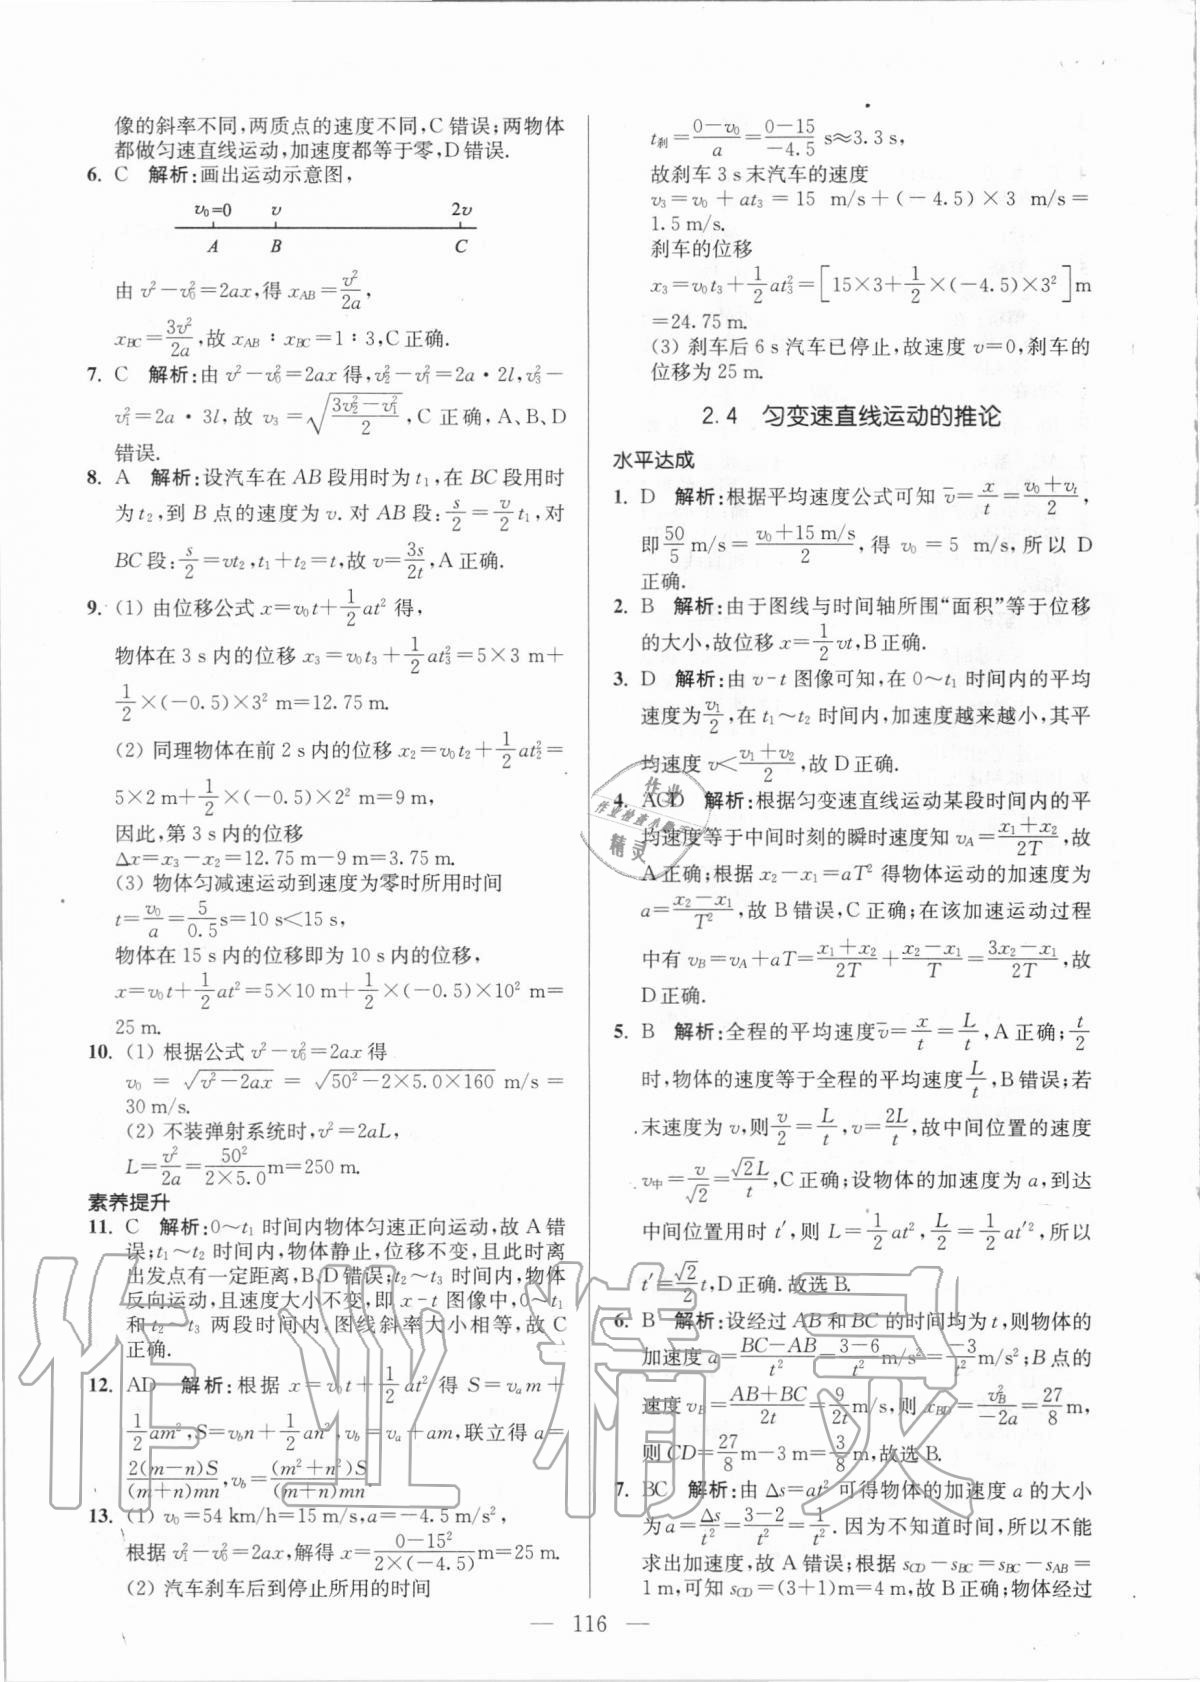 像的斜率不同,两质点的速度不同,C错误;两物体
都做匀速直线运动,加速度都等于零,D错误.
6. C 解析:画出运动示意图,
v₀=0 v 2v
A B C
由 v²-v₀²=2ax,得 x_AB=v²/2a,
x_BC=3v²/2a,故 x_AB∶x_BC=1∶3,C正确.
7. C 解析:由 v²-v₀²=2ax 得,v₂²-v₁²=2a·2l,v₃²-
v₁²=2a·3l,故 v₃=√((3v₂²-v₁²)/2),C 正确,A、B、D
错误.
8. A 解析:设汽车在 AB 段用时为 t₁,在 BC 段用时
为 t₂,到 B 点的速度为 v. 对 AB 段:s/2=v/2 t₁,对
BC 段:s/2=vt₂,t₁+t₂=t,故 v=3s/2t,A 正确.
9. (1) 由位移公式 x=v₀t+1/2 at² 得,
物体在 3 s 内的位移 x₃=v₀t₃+1/2 at₃²=5×3 m+
1/2×(-0.5)×3² m=12.75 m.
(2) 同理物体在前 2 s 内的位移 x₂=v₀t₂+1/2 at₂²=
5×2 m+1/2×(-0.5)×2² m=9 m,
因此,第 3 s 内的位移
Δx=x₃-x₂=12.75 m-9 m=3.75 m.
(3) 物体匀减速运动到速度为零时所用时间
t=v₀/a=5/0.5 s=10 s<15 s,
物体在 15 s 内的位移即为 10 s 内的位移,
x=v₀t+1/2 at²=5×10 m+1/2×(-0.5)×10² m=
25 m.
10. (1) 根据公式 v²-v₀²=2ax 得
v₀=√(v²-2ax)=√(50²-2×5.0×160) m/s=
30 m/s.
(2) 不装弹射系统时,v²=2aL,
L=v²/2a=50²/(2×5.0) m=250 m.
素养提升
11. C 解析:0~t₁ 时间内物体匀速正向运动,故 A 错
误;t₁~t₂ 时间内,物体静止,位移不变,且此时离
出发点有一定距离,B、D 错误;t₂~t₃ 时间内,物体
反向运动,且速度大小不变,即 x-t 图像中,0~t₁
和 t₂~t₃ 两段时间内,图线斜率大小相等,故 C
正确.
12. AD 解析:根据 x=v₀t+1/2 at² 得 S=v_a m+
1/2 am²,S=v_b n+1/2 an²,v_b=v_a+am,联立得 a=
2(m-n)S/(m+n)mn,v_b=(m²+n²)S/(m+n)mn.
13. (1) v₀=54 km/h=15 m/s,a=-4.5 m/s²,
根据 v₁²-v₀²=2ax,解得 x=(0-15²)/(2×(-4.5)) m=25 m.
(2) 汽车刹车后到停止所用的时间
t刹=(0-v₀)/a=(0-15)/-4.5 s≈3.3 s,
故刹车 3 s 末汽车的速度
v₃=v₀+at₃=15 m/s+(-4.5)×3 m/s=
1.5 m/s.
刹车的位移
x₃=v₀t₃+1/2 at₃²=[15×3+1/2×(-4.5)×3²]m
=24.75 m.
(3) 刹车后 6 s 汽车已停止,故速度 v=0,刹车的
位移为 25 m.
2.4 匀变速直线运动的推论
水平达成
1. D 解析:根据平均速度公式可知 v̄=x/t=(v₀+vₜ)/2,
即 50/5 m/s=(v₀+15 m/s)/2,得 v₀=5 m/s,所以 D
正确.
2. B 解析:由于图线与时间轴所围“面积”等于位移
的大小,故位移 x=1/2 vt,B正确.
3. D 解析:由 v-t 图像可知,在 0~t₁ 时间内的平均
速度为 v₁/2,在 t₁~t₂ 时间内,加速度越来越小,其平
均速度 v<(v₁+v₂)/2,故 D 正确.
4. ACD 解析:根据匀变速直线运动某段时间内的平
均速度等于中间时刻的瞬时速度知 v_A=(x₁+x₂)/2T,故
A 正确;根据 x₂-x₁=aT² 得物体运动的加速度为
a=(x₂-x₁)/T²,故 B 错误,C 正确;在该加速运动过程
中有 v_B=v_A+aT=(x₁+x₂)/2T+(x₂-x₁)/T=(3x₂-x₁)/2T,故
D 正确.
5. B 解析:全程的平均速度 v̄=x/t=L/t,A 正确;t/2
时,物体的速度等于全程的平均速度 L/t,B 错误;若
末速度为 v,则 v/2=L/t,v=2L/t,故中间位置的速度
v中=v/√2=√2L/t,C 正确;设物体的加速度为 a,到达
中间位置用时 t′,则 L=1/2 at²,L/2=1/2 at′²,所以
t′=√2/2 t,D 正确. 故选 B.
6. B 解析:设经过 AB 和 BC 的时间均为 t,则物体的
加速度 a=(BC-AB)/t²=(3-6)/t²=-3/t² m/s²;B 点的
速度 v_B=(AB+BC)/2t=9/2t m/s,则 x_BD=v_B²/-2a=27/8 m,
则 CD=27/8 m-3 m=3/8 m,故选 B.
7. BC 解析:由 Δs=at² 可得物体的加速度 a 的大小
为 a=Δs/t²=(3-2)/t²=1/t². 因为不知道时间,所以不能
求出加速度,故 A 错误;根据 s_CD-s_BC=s_BC-s_AB=
1 m,可知 s_CD=(3+1)m=4 m,故 B 正确;物体经过
— 116 —
作业
作业检查小助手
精灵
作业精灵